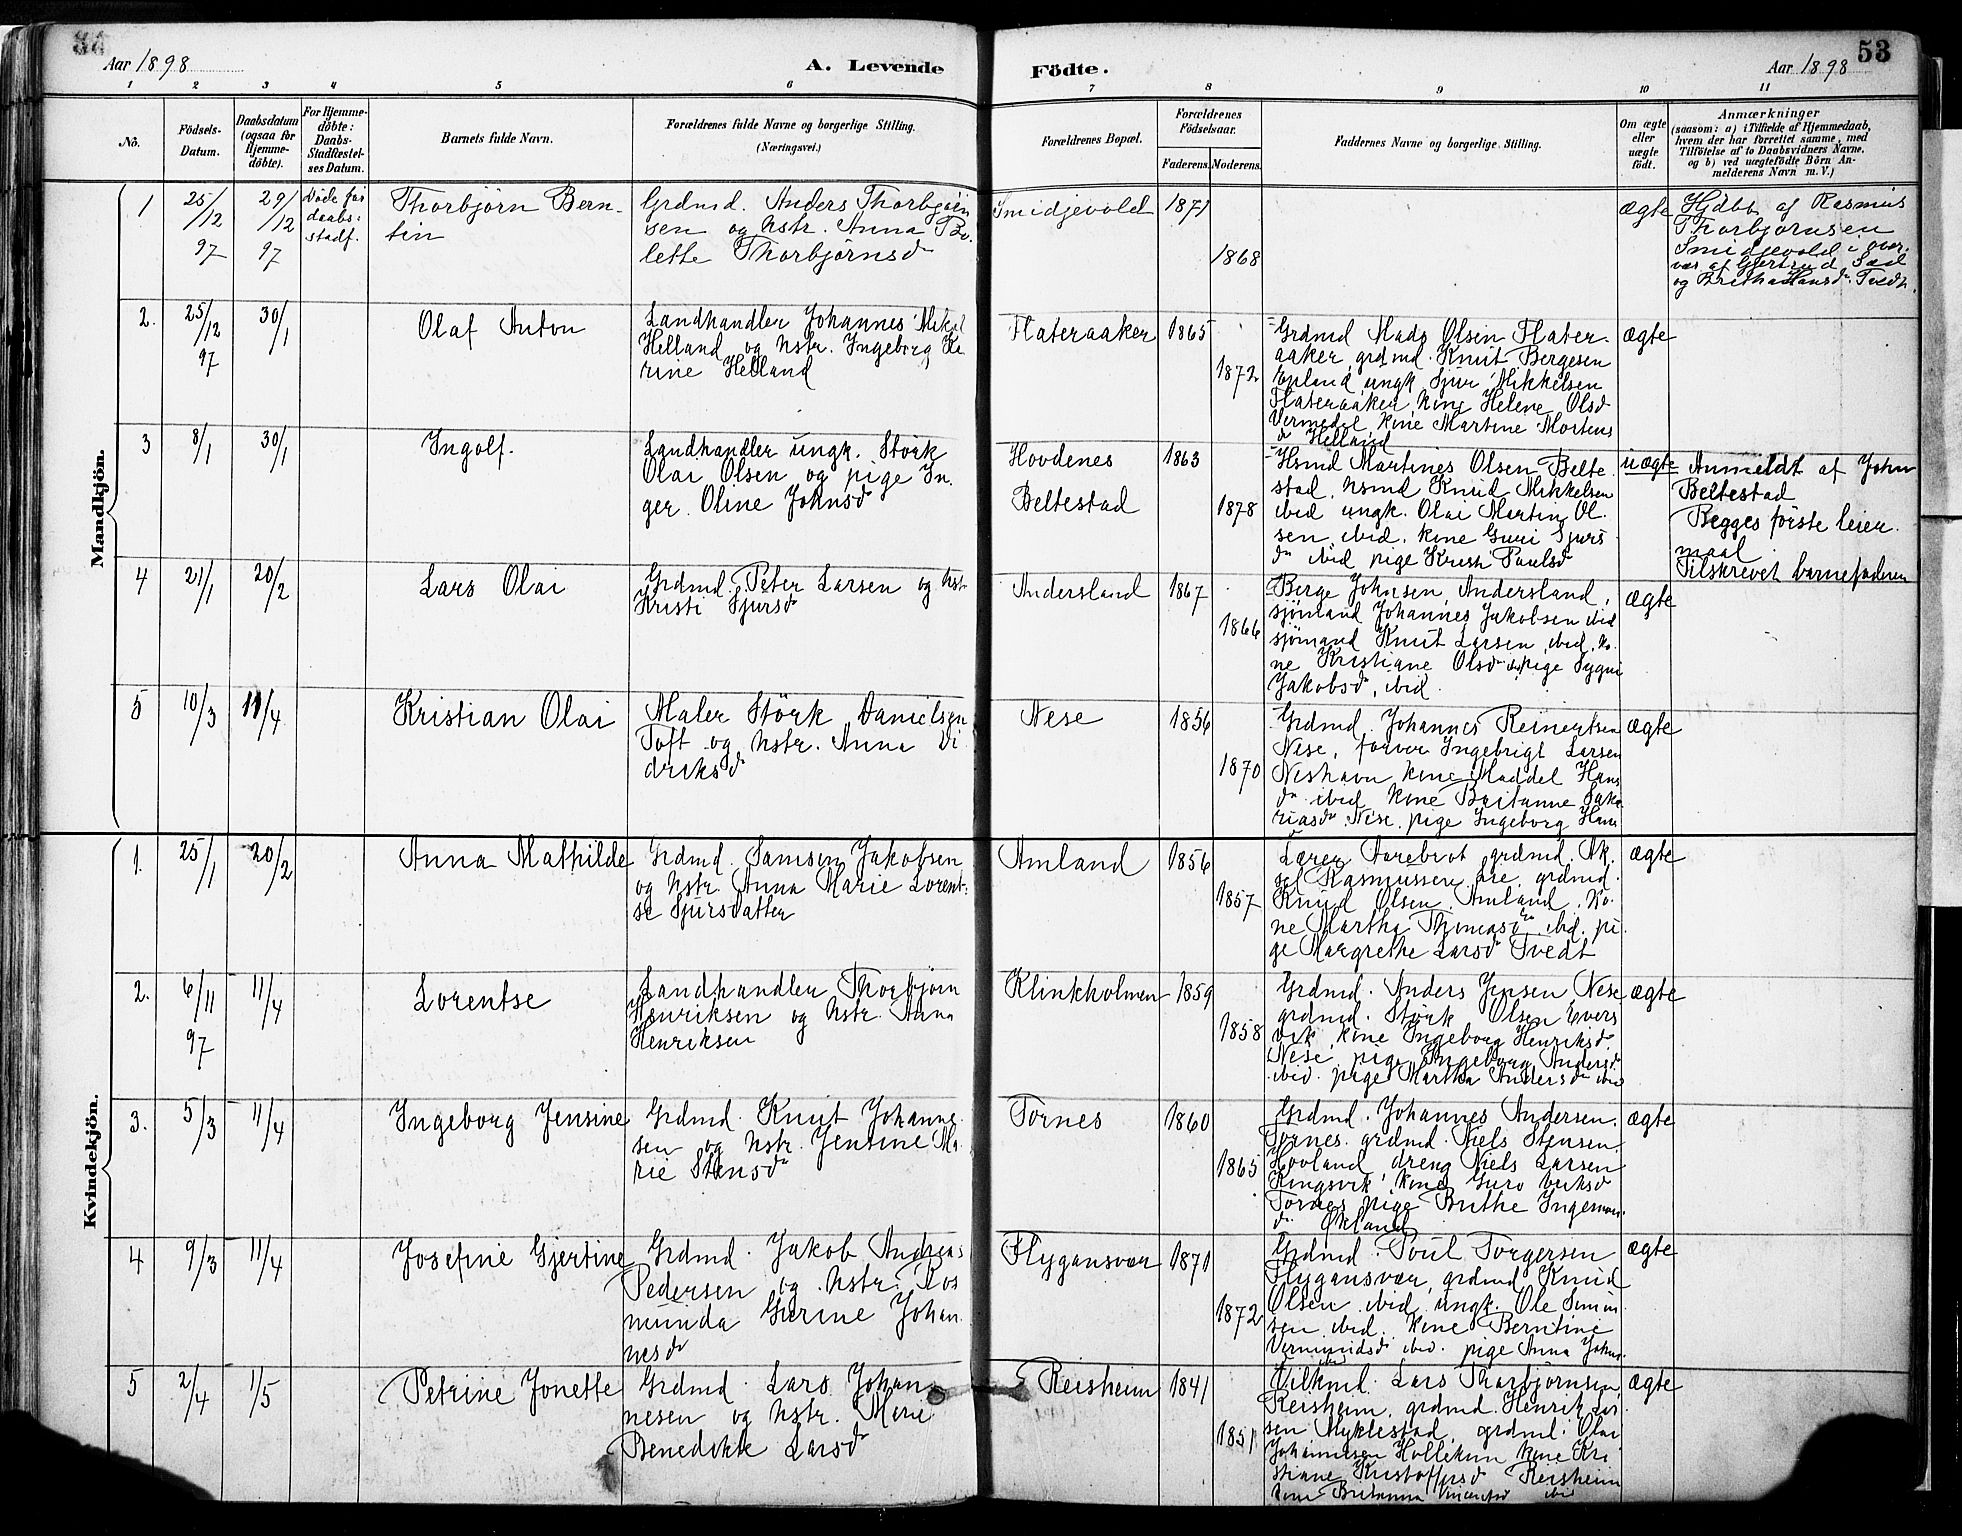 Aar 1898
A. Levende
Födte.
Aar 1898
53
1 2 3 4 5 6 7 8 9 10 11
No.
Födsels-
Datum.
Daabsdatum
(ogsaa for
Hjemme-
döbte).
For Hjemme-
döbte:
Daabs-
Stadfæstel-
ses Datum.
Barnets fulde Navn.
Forældrenes fulde Navne og borgerlige Stilling.
(Næringsvei.)
Forældrenes Bopæl.
Forældrenes
Födselsaar.
Faderens. Moderens.
Faddernes Navne og borgerlige Stilling.
Om ægte
eller
uægte
födt.
Anmærkninger
(saasom: a) i Tilfælde af Hjemmedaab,
hvem der har forrettet samme, med
Tilföielse af to Daabsvidners Navne,
og b) ved uægtefödte Börn An-
melderens Navn m. V.)
Mandkjön.
1
25/12
97
29/12
97
Döde för
daabs:
stadf.
Thorbjörn Bern-
tin
Grdmd. Anders Thorbjörn
sen og hstr. Anna Bo-
lette Thorbjörnsdr
Smidjevold
1871
1868
ægte
Hjdbt af Rasmus
Thorbjörnsen
Smidjevold i over-
vær af Gjertrud Sæd
og Britha Hansdr Tvedt.
2.
25/12
97
30/1
Olaf Anton
Landhandler Johannes Mikal
Helland og hstr. Ingeborg Ka
rine Helland
Flateraaker
1865
1872
Grdmd Mads Olsen Flater-
aaker, grdmd. Knut Bergesen
Opland, ungk. Sjur Mikkelsen
Flateraaker, kone Helene Olsdr
Vermedal, kone Martine Mortens
dr Helland
ægte
3
8/1
30/1
Ingolf.
Landhandler ungk. Störk
Olai Olsen og pige In-
ger Oline Johnsdr
Hovdenes
Beltestad
1863
1878
Hsmd Martines Olsen Belte
stad, hsmd Knud Mikkelsen
ibid ungk. Olai Martin Ol-
sen, ibid. kone Guri Sjurs
dr ibid pige Kristi Paulsdr
uægte
Anmeldt af John
Beltestad
Begges förste leier-
maal
Tilskrevet barnefaderen
4
21/1
20/2
Lars Olai
Grdmd. Peter Larsen og hstr
Kristi Sjursdr
Andersland
1867
1866
Berge Johnsen, Andersland,
sjömand Johannes Jakobsen ibid
sjömand Knut Larsen, ibid, ko-
ne Kristiane Olsdr ibid pige Sygni
Jakobsdr, ibid.
ægte
5
10/3
11/4
Kristian Olai
Maler Störk Danielsen
Toft og hstr. Anna Di
driksdr
Nese
1856
1870
Grdmd. Johannes Reinertsen
Nese, Ingebrigt Larsen
Neshavn, kone Maddel Hans
dr ibid kone Britanne Saka
riasdr Nese pige Ingeborg Hans
ægte
Kvindekjön.
1.
25/1
20/2
Anna Mathilde
Grdmd. Samson Jakobsen
og hstr. Anna Marie Lorent-
se Sjursdatter
Amland
1856
1857
Lærer Aarebrot grdmd. Ak-
sel Rasmussen Are, grdmd.
Knud Olsen, Amland, ko-
ne Martha Thomasdr ibid. pi-
ge Margrethe Larsdr Tvedt
ægte
2.
6/11
97
11/4
Lorentse
Landhandler Thorbjörn
Henriksen og hstr. Anna
Henriksen
Klinkholmen
1859
1858
Grdmd. Anders Jensen, Nese
grdmd. Störk Olsen Evers
vik, kone Ingeborg Henriksdr
Nese, pige Ingeborg Andersdr
ibid. pige Martha Andersdr ibid
ægte
3.
5/3
11/4
Ingeborg Jensine
Grdmd. Knut Johanne-
sen og hstr. Jensine Ma
rie Stensdr
Tornes
1860
1865
Grdmd. Johannes Andersen
Tornes. grdmd. Niels Stensen
Hovland, dreng Niels Larsen
Kongsvik, kone Guro Eriksdr
Tornes pige Brithe Ingemon
dr Økland
ægte
4
9/3
11/4
Josefine Gjertine
Grdmd. Jakob Andreas
Pedersen og hstr. Ros
munda Gurine Johan-
nesdr
Flygansvær
1871
1872
Grdmd. Poul Torgersen
Flygansvær, grdmd Knud
Olsen ibid, ungk. Ole Simon-
sen ibid. kone Berntine
Vermundsdr ibid. pige Anna Johns-
ibid
ægte
5
2/4
1/5
Petrine Jonette
Grdmd. Lars Johan-
nesen og hstr. Marie
Benedikte Larsdr
Reisheim
1841
1851
Vilkmd. Lars Thorbjörnsen
Reisheim, grdmd. Henrik Lar
sen Myklestad, grdmd. Olai
Johannesen Hollekim kone Kri
stiane Kristoffersdr Reisheim
kone Britanna Vincentsdr ibid
ægte